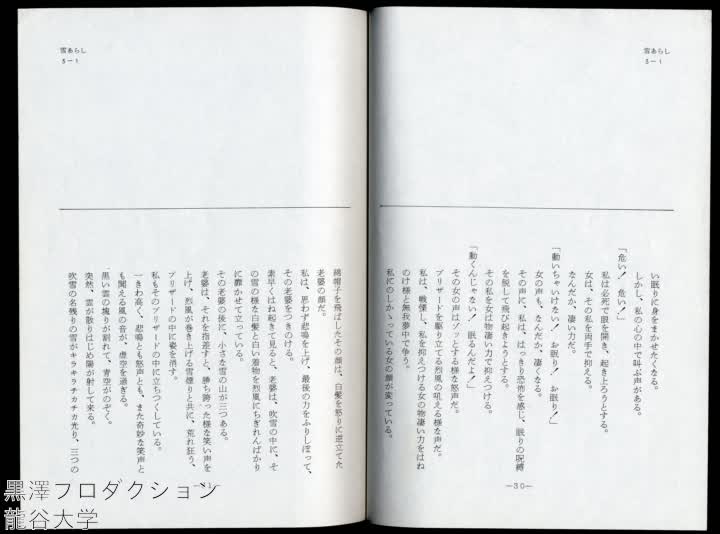 雪あらし
5-1
い眠りに身をまかせたくなる。
しかし、私の心の中で叫ぶ声がある。
「危い！　危い！」
私は必死で眼を開き、起き上ろうとする。
女は、その私を両手で抑える。
なんだか、凄い力だ。
「動いちゃいけない！　お眠り！　お眠り！」
女の声も、なんだか、凄くなる。
その声に、私は、はっきり恐怖を感じ、眠りの呪縛
を脱して飛び起きようとする。
その私を女は物凄い力で抑えつける。
「動くんじゃない！　眠るんだよ！」
その女の声はゾッとする様な怒声だ。
ブリザードを駆り立てる烈風の吼える様な声だ。
私は、戦慄し、私を抑えつける女の物凄い力をはね
のけ様と無我夢中で争う。
私にのしかゝっている女の顔が変っている。
—30—
雪あらし
5-1
綿帽子を飛ばしたその顔は、白髪を怒りに逆立てた
老婆の顔だ。
私は、思わず悲鳴を上げ、最後の力をふりしぼって、
その老婆をつきのける。
素早くはね起きて見ると、老婆は、吹雪の中に、そ
の雪の様な白髪と白い着物を烈風にちぎれんばかり
に靡かせて立っている。
その老婆の後に、小さな雪の山が三つある。
老婆は、それを指差すと、勝ち誇った様な笑い声を
上げ、烈風が巻き上げる雪煙りと共に、荒れ狂う、
ブリザードの中に姿を消す。
私もそのブリザードの中に立ちつくしている。
一きわ高く、悲鳴とも怒声とも、また奇妙な笑声と
も聞える風の音が、虚空を過ぎる。
黒い雲の塊りが割れて、青空がのぞく。
突然、雲が散りはじめ陽が射して来る。
吹雪の名残りの雪がキラキラチカチカ光り、三つの
黒澤プロダクション
龍谷大学